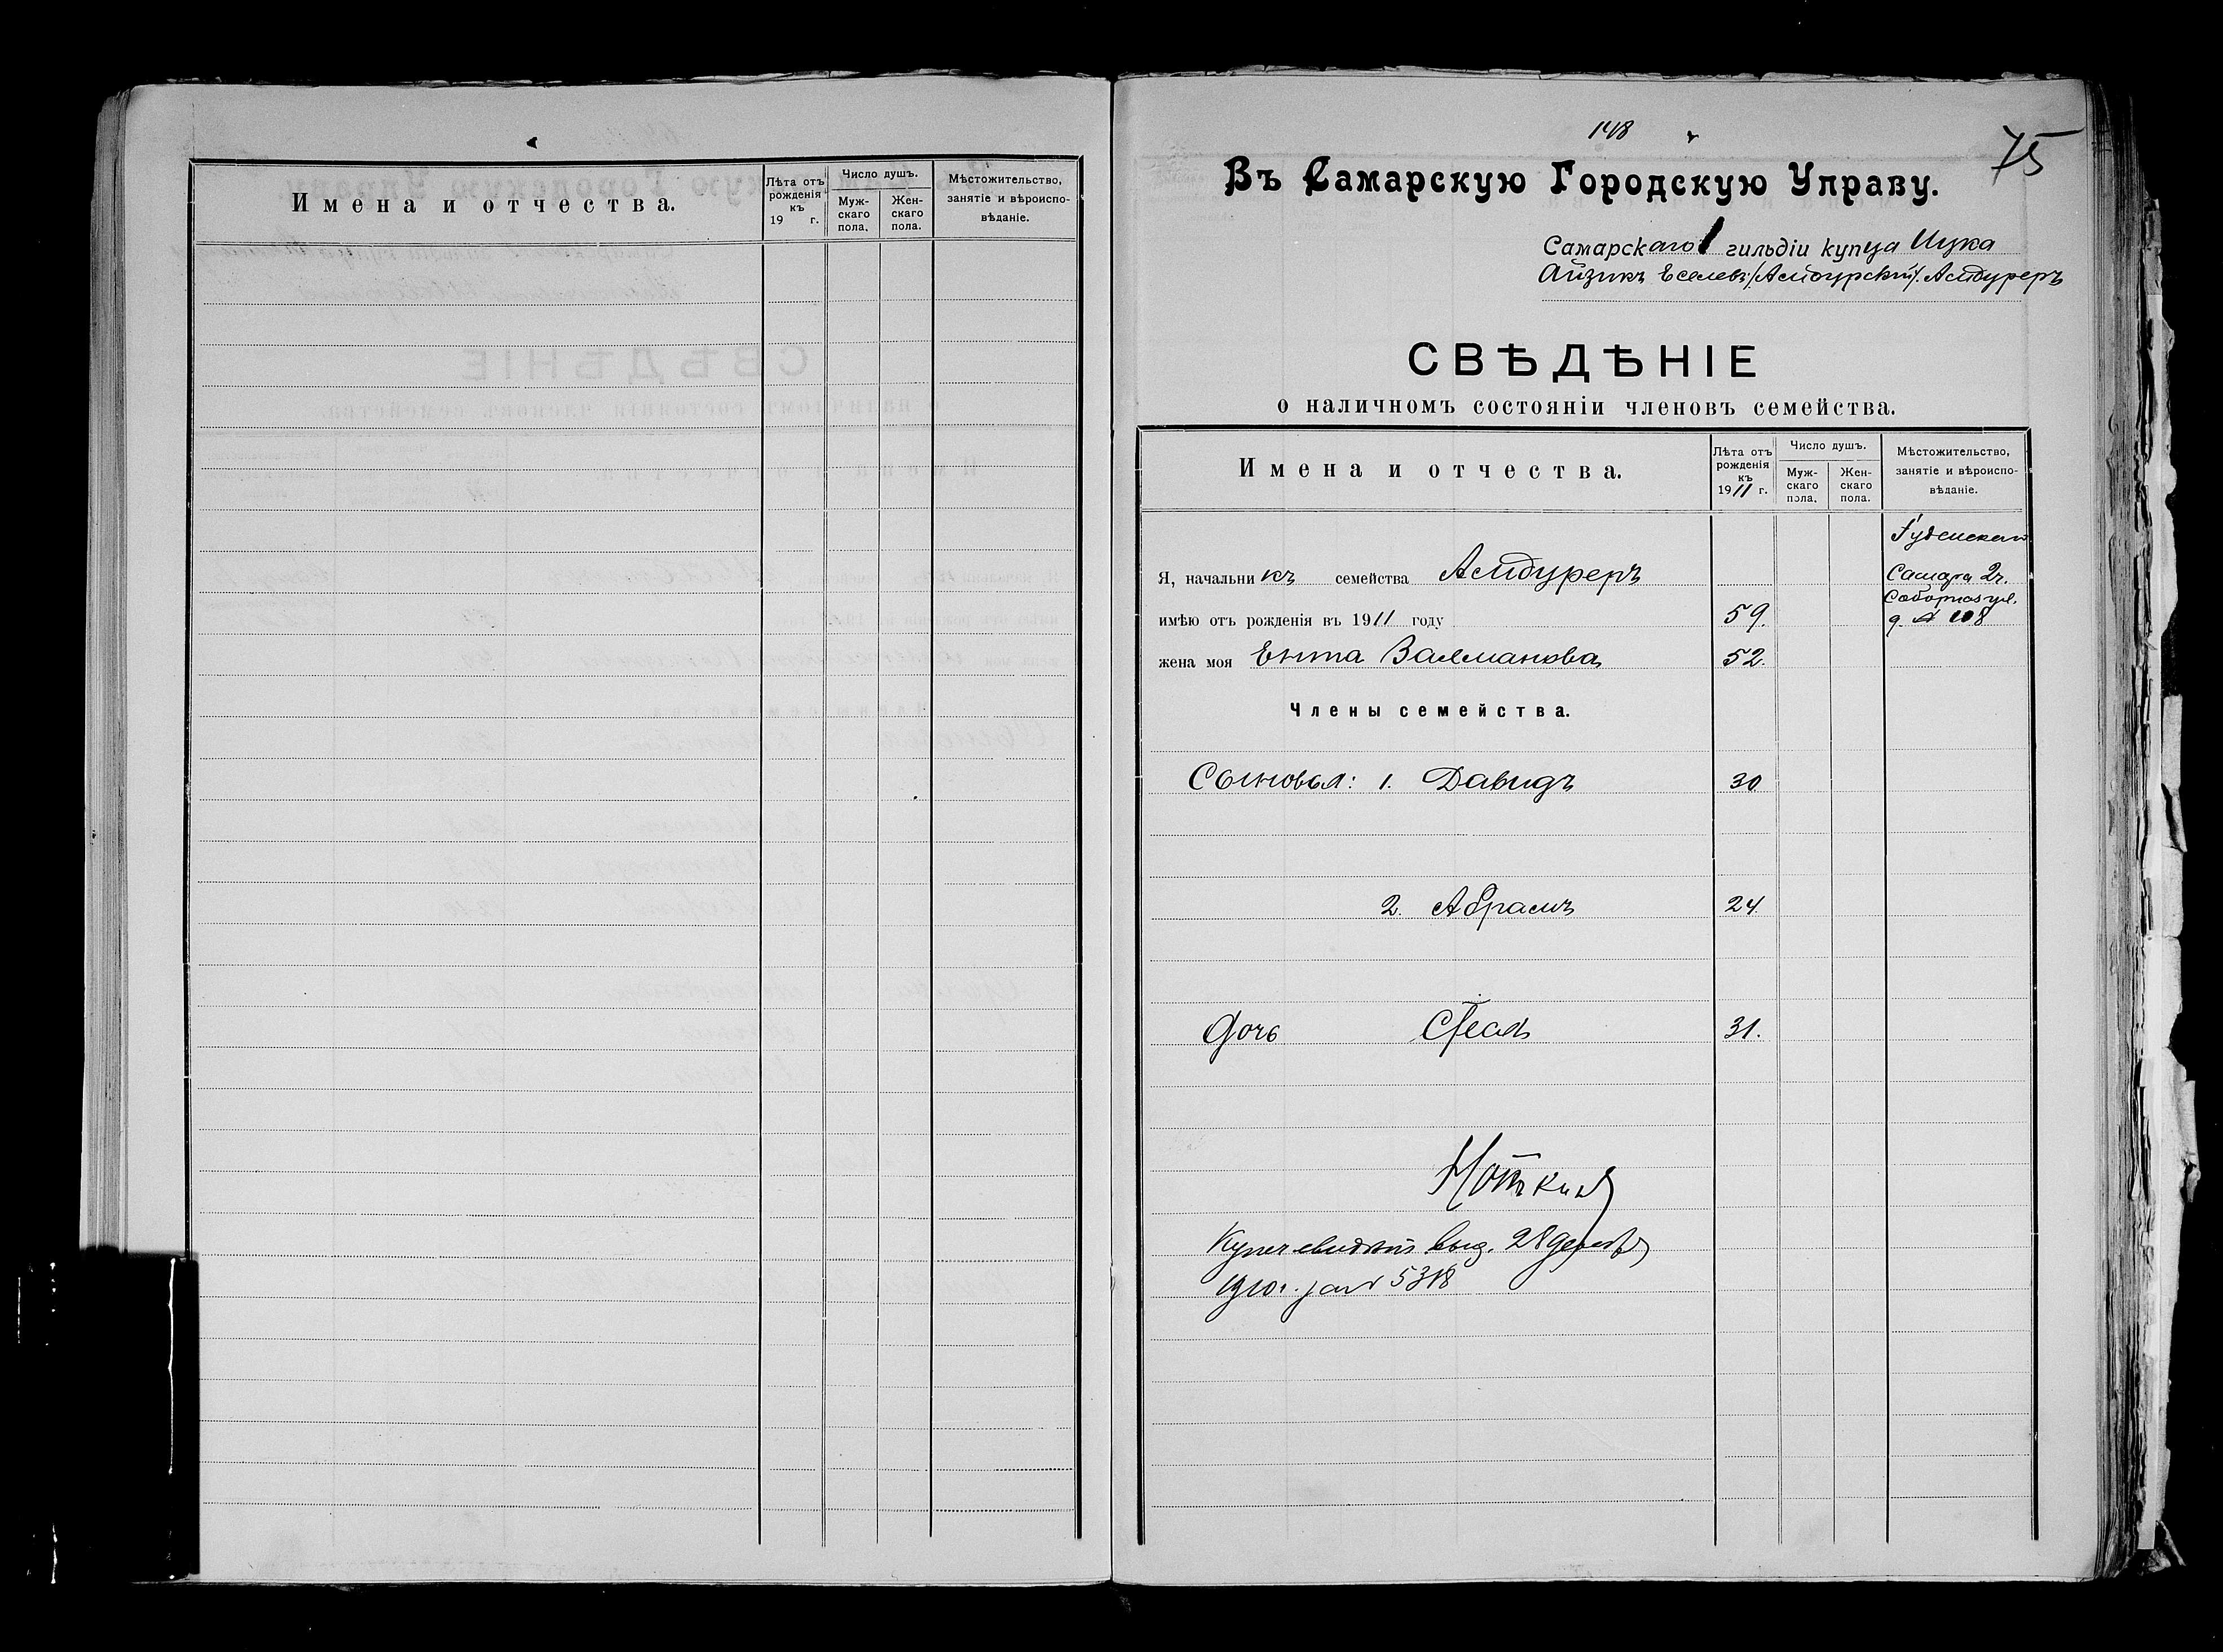 Имена и отчества.
Лѣта отъ рожденія къ 19 г.
Число душъ.
Мужскаго пола.
Женскаго пола.
Мѣстожительство, занятіе и вѣроисповѣданіе.
148
75
Въ Самарскую Городскую Управу.
Самарскаго 1 гильдіи купца Ицка
Айзикъ Еселевъ (Амдурский) Амдуреръ
СВѢДѢНІЕ
о наличномъ состояніи членовъ семейства.
Имена и отчества.
Лѣта отъ рожденія къ 1911 г.
Число душъ.
Мужскаго пола.
Женскаго пола.
Мѣстожительство, занятіе и вѣроисповѣданіе.
Я, начальникъ семейства Амдуреръ
Самара 2ч.
Соборная ул.
имѣю отъ рожденія въ 1911 году 59.
д. № 108
жена моя Ента Залманова 52.
Члены семейства.
Сыновья: 1. Давидъ 30
2. Абрамъ 24.
Дочь 31.
Купеч. выд. 28 декабря
1910 г. за № 5318